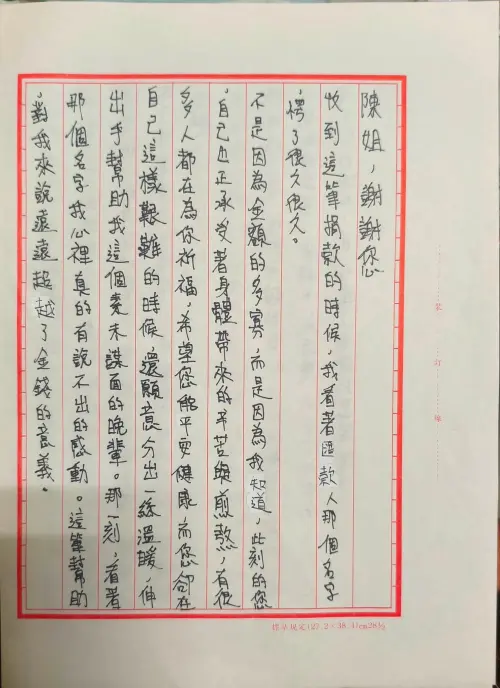 陳姐，謝謝您
收到這筆捐款的時候，我看著匯款人那個名字
，愣了很久很久。
不是因為金額的多寡，而是因為我知道，此刻的您
，自己也正承受著身體帶來的辛苦與煎熬，有很
多人都在為你祈福，希望您能平安健康，而您卻在
自己這樣艱難的時候，還願意分出一絲溫暖，伸
出手幫助我這個素未謀面的晚輩。那一刻，看著
那個名字我心裡真的有說不出的感動。這筆幫助
，對我來說遠遠超越了金錢的意義。
裝
訂
線